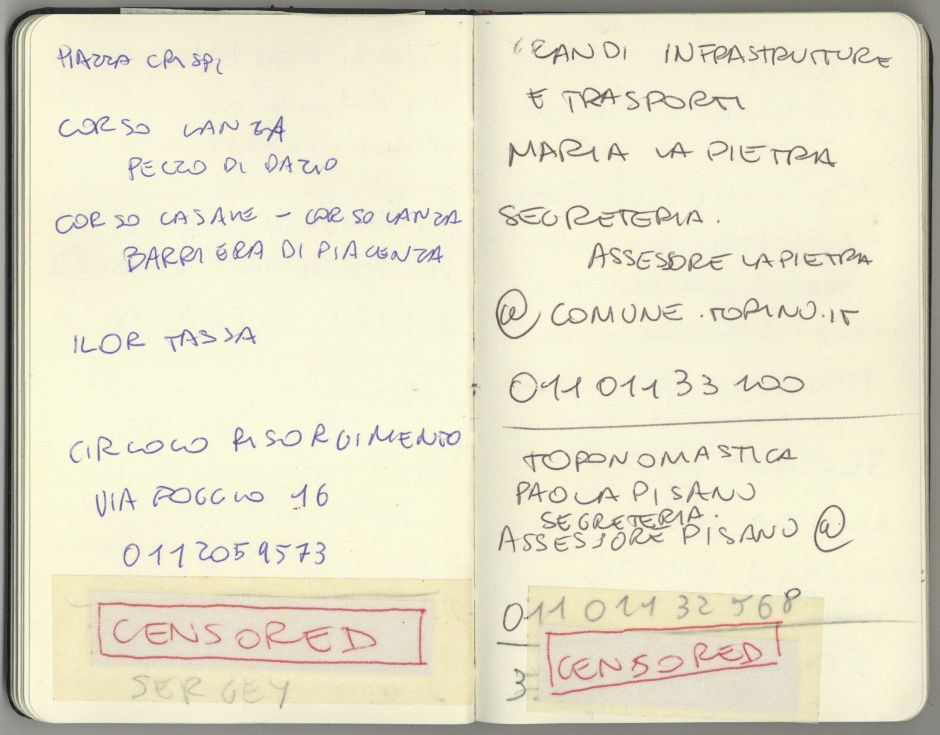 PIAZZA CRISPI
CORSO LANZA
PEZZO DI DAZIO
CORSO CASALE - CORSO LANZA
BARRIERA DI PIACENZA
ILOR TASSA
CIRCOLO RISORGIMENTO
VIA POGGIO 16
0112059573
CENSORED
SERGEY
GRANDI INFRASTRUTTURE
E TRASPORTI
MARIA LA PIETRA
SEGRETERIA.
ASSESSORE LAPIETRA
@ COMUNE.TORINO.IT
011 011 33 100
TOPONOMASTICA
PAOLA PISANO
SEGRETERIA.
ASSESSORE PISANO @
011 011 32 568
CENSORED
3